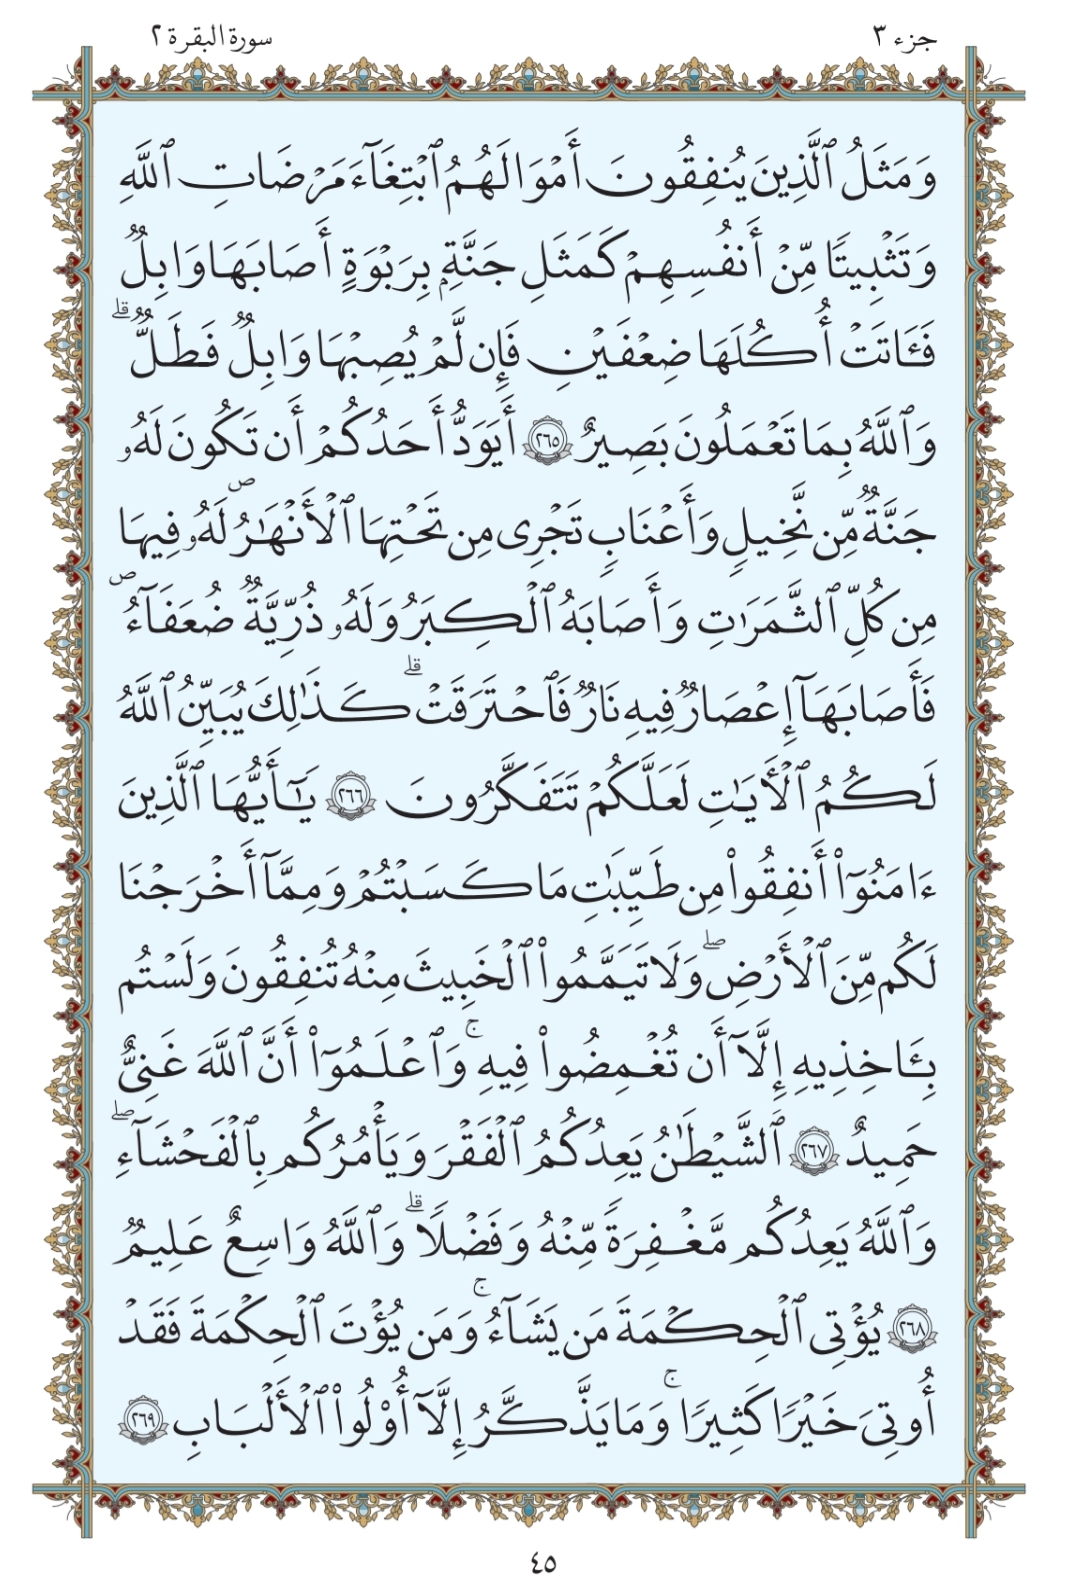 جزء ٣
سورة البقرة ٢
وَمَثَلُ ٱلَّذِينَ يُنفِقُونَ أَمْوَٰلَهُمُ ٱبْتِغَآءَ مَرْضَاتِ ٱللَّهِ
وَتَثْبِيتًا مِّنْ أَنفُسِهِمْ كَمَثَلِ جَنَّةٍۭ بِرَبْوَةٍ أَصَابَهَا وَابِلٌ
فَـَٔاتَتْ أُكُلَهَا ضِعْفَيْنِ فَإِن لَّمْ يُصِبْهَا وَابِلٌ فَطَلٌّ ۗ
وَٱللَّهُ بِمَا تَعْمَلُونَ بَصِيرٌ ٢٦٥ أَيَوَدُّ أَحَدُكُمْ أَن تَكُونَ لَهُۥ
جَنَّةٌ مِّن نَّخِيلٍ وَأَعْنَابٍ تَجْرِى مِن تَحْتِهَا ٱلْأَنْهَٰرُ ص لَهُۥ فِيهَا
مِن كُلِّ ٱلثَّمَرَٰتِ وَأَصَابَهُ ٱلْكِبَرُ وَلَهُۥ ذُرِّيَّةٌ ضُعَفَآءُ ص
فَأَصَابَهَآ إِعْصَارٌ فِيهِ نَارٌ فَٱحْتَرَقَتْ ۗ كَذَٰلِكَ يُبَيِّنُ ٱللَّهُ
لَكُمُ ٱلْأَيَٰتِ لَعَلَّكُمْ تَتَفَكَّرُونَ ٢٦٦ يَٰٓأَيُّهَا ٱلَّذِينَ
ءَامَنُوٓا۟ أَنفِقُوا۟ مِن طَيِّبَٰتِ مَا كَسَبْتُمْ وَمِمَّآ أَخْرَجْنَا
لَكُم مِّنَ ٱلْأَرْضِ ۖ وَلَا تَيَمَّمُوا۟ ٱلْخَبِيثَ مِنْهُ تُنفِقُونَ وَلَسْتُم
بِـَٔاخِذِيهِ إِلَّآ أَن تُغْمِضُوا۟ فِيهِ ۚ وَٱعْلَمُوٓا۟ أَنَّ ٱللَّهَ غَنِىٌّ
حَمِيدٌ ٢٦٧ ٱلشَّيْطَٰنُ يَعِدُكُمُ ٱلْفَقْرَ وَيَأْمُرُكُم بِٱلْفَحْشَآءِ ۖ
وَٱللَّهُ يَعِدُكُم مَّغْفِرَةً مِّنْهُ وَفَضْلًا ۗ وَٱللَّهُ وَاسِعٌ عَلِيمٌ
٢٦٨ يُؤْتِى ٱلْحِكْمَةَ مَن يَشَآءُ ۚ وَمَن يُؤْتَ ٱلْحِكْمَةَ فَقَدْ
أُوتِىَ خَيْرًا كَثِيرًا ۚ وَمَا يَذَّكَّرُ إِلَّآ أُو۟لُوا۟ ٱلْأَلْبَابِ ٢٦٩
٤٥